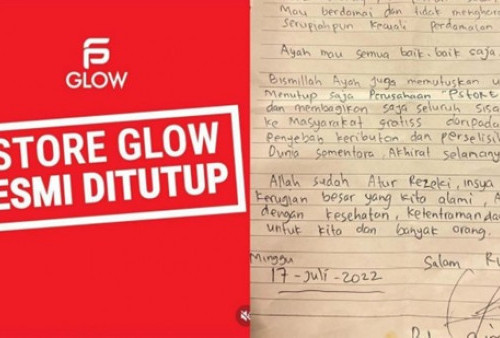 GLOW
STORE GLOW
ESMI DITUTUP
Mau berdamai dan tidak mengharap
serupiahpun kecuali perdamaian
Ayah mau semua baik-baik saja
Bismillah Ayah juga memutuskan u
Menutup saja Perusahaan "Pstore
dan membagikan saja seluruh sisa
ke Masyarakat gratiss daripada
Penyebab keributan dan perselisi
Dunia sementara, Akhirat selamany
Allah sudah Atur Rezeki, insya
kerugian besar yang kita alami, A
dengan kesehatan, ketentraman da
untuk kita dan banyak orang.
Minggu
Salam
17 - Juli - 2022